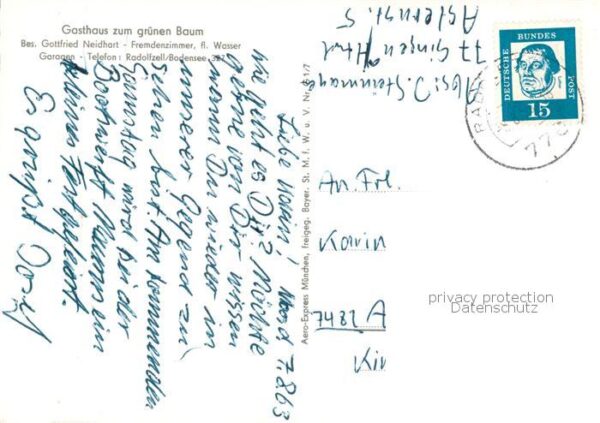 Gasthaus zum grünen Baum
Bes. Gottfried Neidhart - Fremdenzimmer, fl. Wasser
Garagen - Telefon: Radolfzell/Bodensee 327
Liebe Karin! Moos, 7.8.63
Wie geht es Dir? Möchte
gerne von Dir wissen
wann Du wieder in
unserer Gegend zu
sehen bist. Am kommenden
Samstag wird bei der
Bootswerft Mamm ein
kleines Fest gefeiert.
Es grüßt
Aero-Express München, Freigeg. Bayer. St. M. f. W. u. V. Nr. G 1/7
Abs: J. Steinmayer
77 Singen/Htwl
Asternst. 5
DEUTSCHE BUNDES POST
15
RAD
77
An. Frl.
Karin
7481 A
Kir
privacy protection
Datenschutz